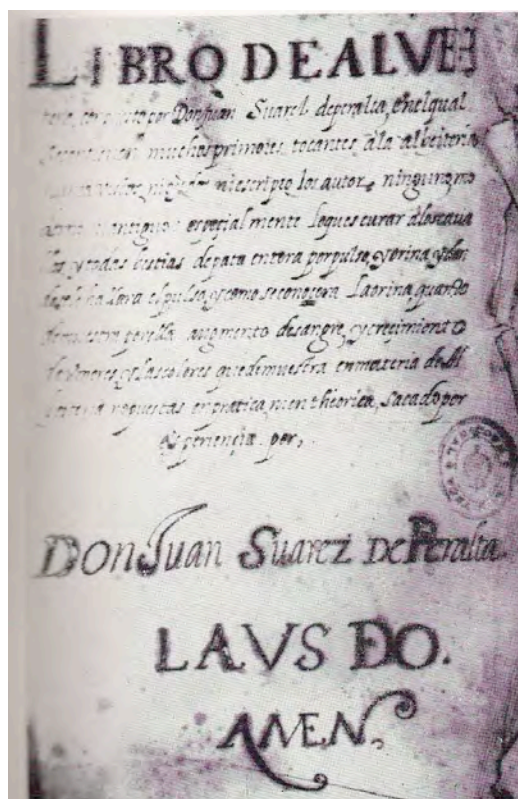 LIBRO DE ALVEI
teria, conpuesto por Don Juan Suarez deperalta, enelqual
secontienen muchos primores tocantes ala albeiteria
nunca vistos ni niescripto los autores ninguno mo
derno niantiguo especialmente loques curar alos cava
llos y todas bestias depata entera porpulso, y orina, y don
desele hallara elpulso, y como seconosera laorina quando
demuestra porella augmento desangre, y crecimiento
de umores, y las colores quedemuestra enmateria de Al
ueiteria en pratica, nien theorica, sacado por
esperiençia por,
Don Juan Suarez De Peralta
LAVS DO.
AMEN.